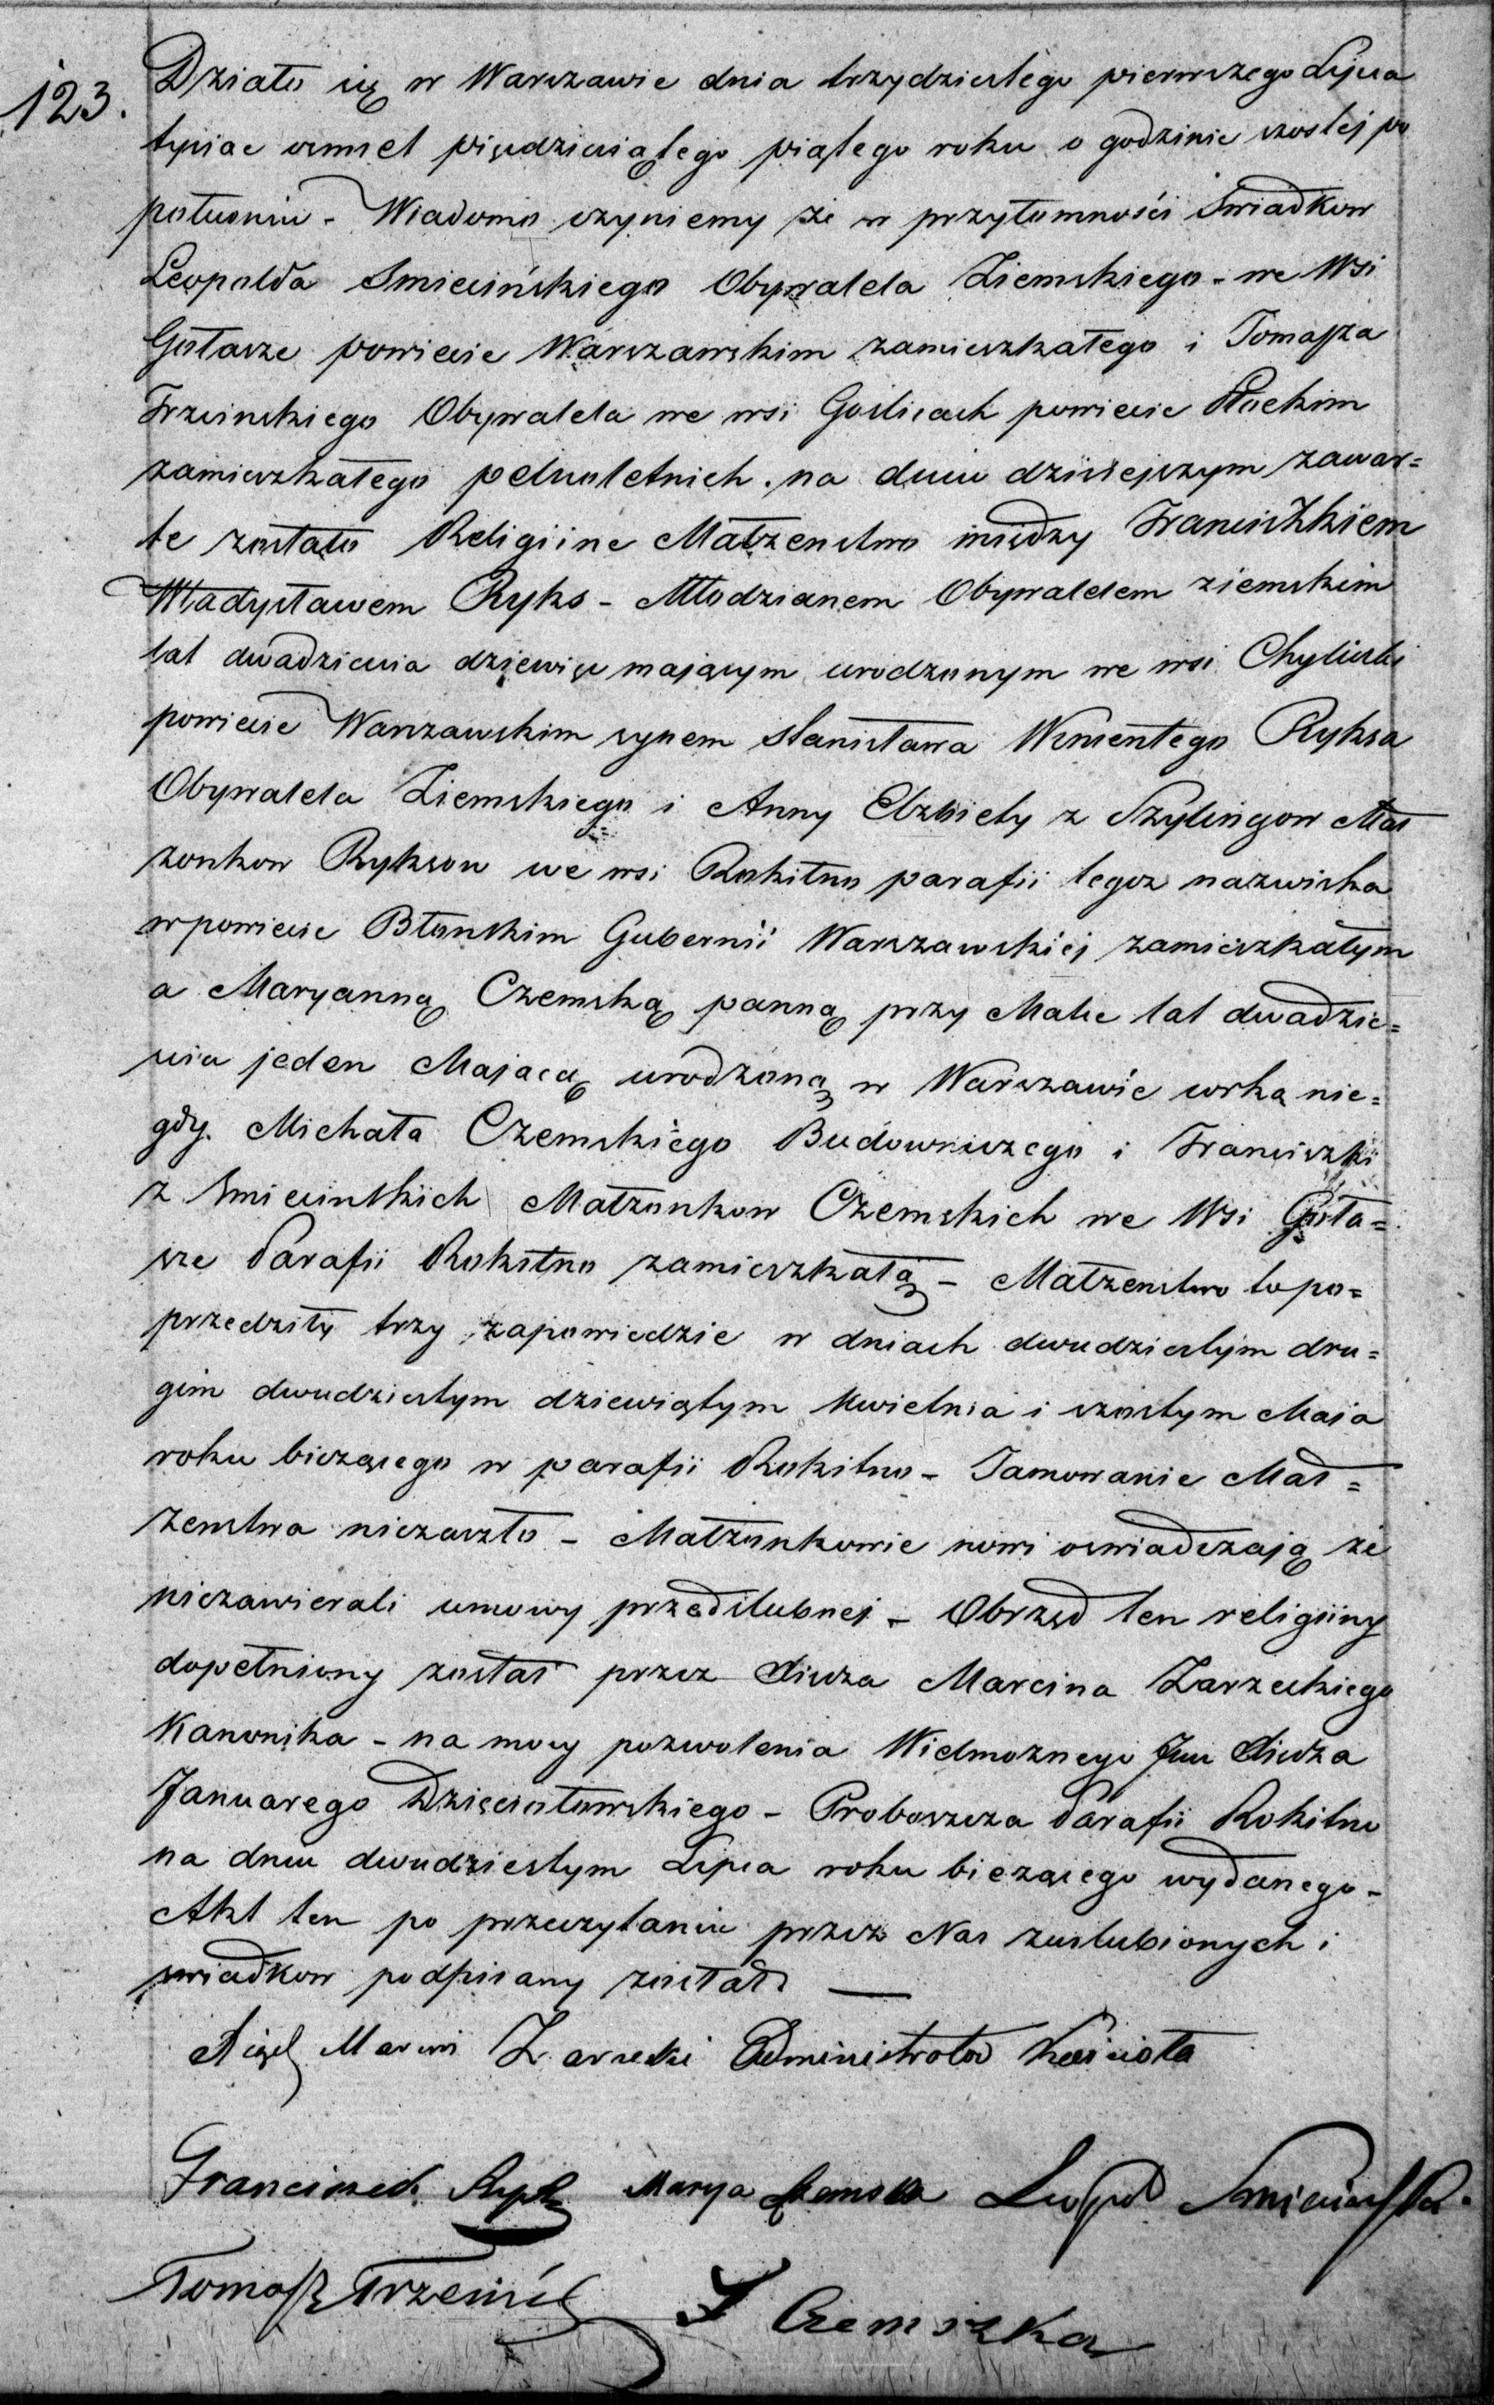 123.
Działo się w Warszawie dnia trzydziestego pierwszego Lipca
tysiac osmset pięcdziesiątego piątego roku o godzinie szostej po
południu - Wiadomo czyniemy że w przytomności Swiadkow
Leopolda Smiecińskiego Obywatela Ziemskiego - we Wsi
Gołasze powiecie Warszawskim zamieszkałego i Tomasza
Trzcinskiego Obywatela we wsi Goslicach powiecie Płockim
zamieszkałego pełnoletnich. na dniu dzisiejszym zawar=
te zostało Religiine Małżenstwo między Franciszkiem
Władysławem Ryks - Młodzianem Obywatelem ziemskim
lat dwadziescia dziewięc mającym urodzonym we wsi Chyliczki
powiecie Warszawskim synem Stanisława Wincentego Ryksa
Obywatela Ziemskiego i Anny Elzbiety z Szylingow Mał
zonkow Ryksow we wsi Rokitno parafii tegoz nazwiska
w powiecie Błonskim Gubernii Warszawskiej zamieszkałym
a Maryanną Czemską panną przy Matce lat dwadzie=
scia jeden Mającą urodzoną w Warszawie corką nie=
gdy. Michała Czemskiego Budowniczego i Franciszki
z Smiecinskich Małzonkow Czemskich we Wsi Goła=
sze Parafii Rokitno zamieszkałą - Małzenstwo to po=
przedziły trzy zapowiedzie w dniach dwudziestym dru=
gim dwudziestym dziewiątym Kwietnia i szostym Maja
roku biezącego w parafii Rokitno - Tamowanie Mał=
zenstwa niezaszło - Małzonkowie nowi oswiadczają że
niezawierali umowy przedslubnej - Obrzęd ten religiiny
dopełniony został przez Xiedza Marcina Zarzeckiego
Kanonika - na mocy pozwolenia Wielmoznego Jmc Xiedza
Januarego Dzięciołowskiego - Proboszcza Parafii Rokitno
na dniu dwudziestym Lipca roku biezącego wydanego -
Akt ten po przeczytaniu przez Nas zaslubionych i
swiadkow podpisany został —
Xiądz Marcin Zarzecki Administrator Kościoła
Franciszek Ryks Marya Czemska Leopold Smieciński
Tomasz Trzciński F Czemska